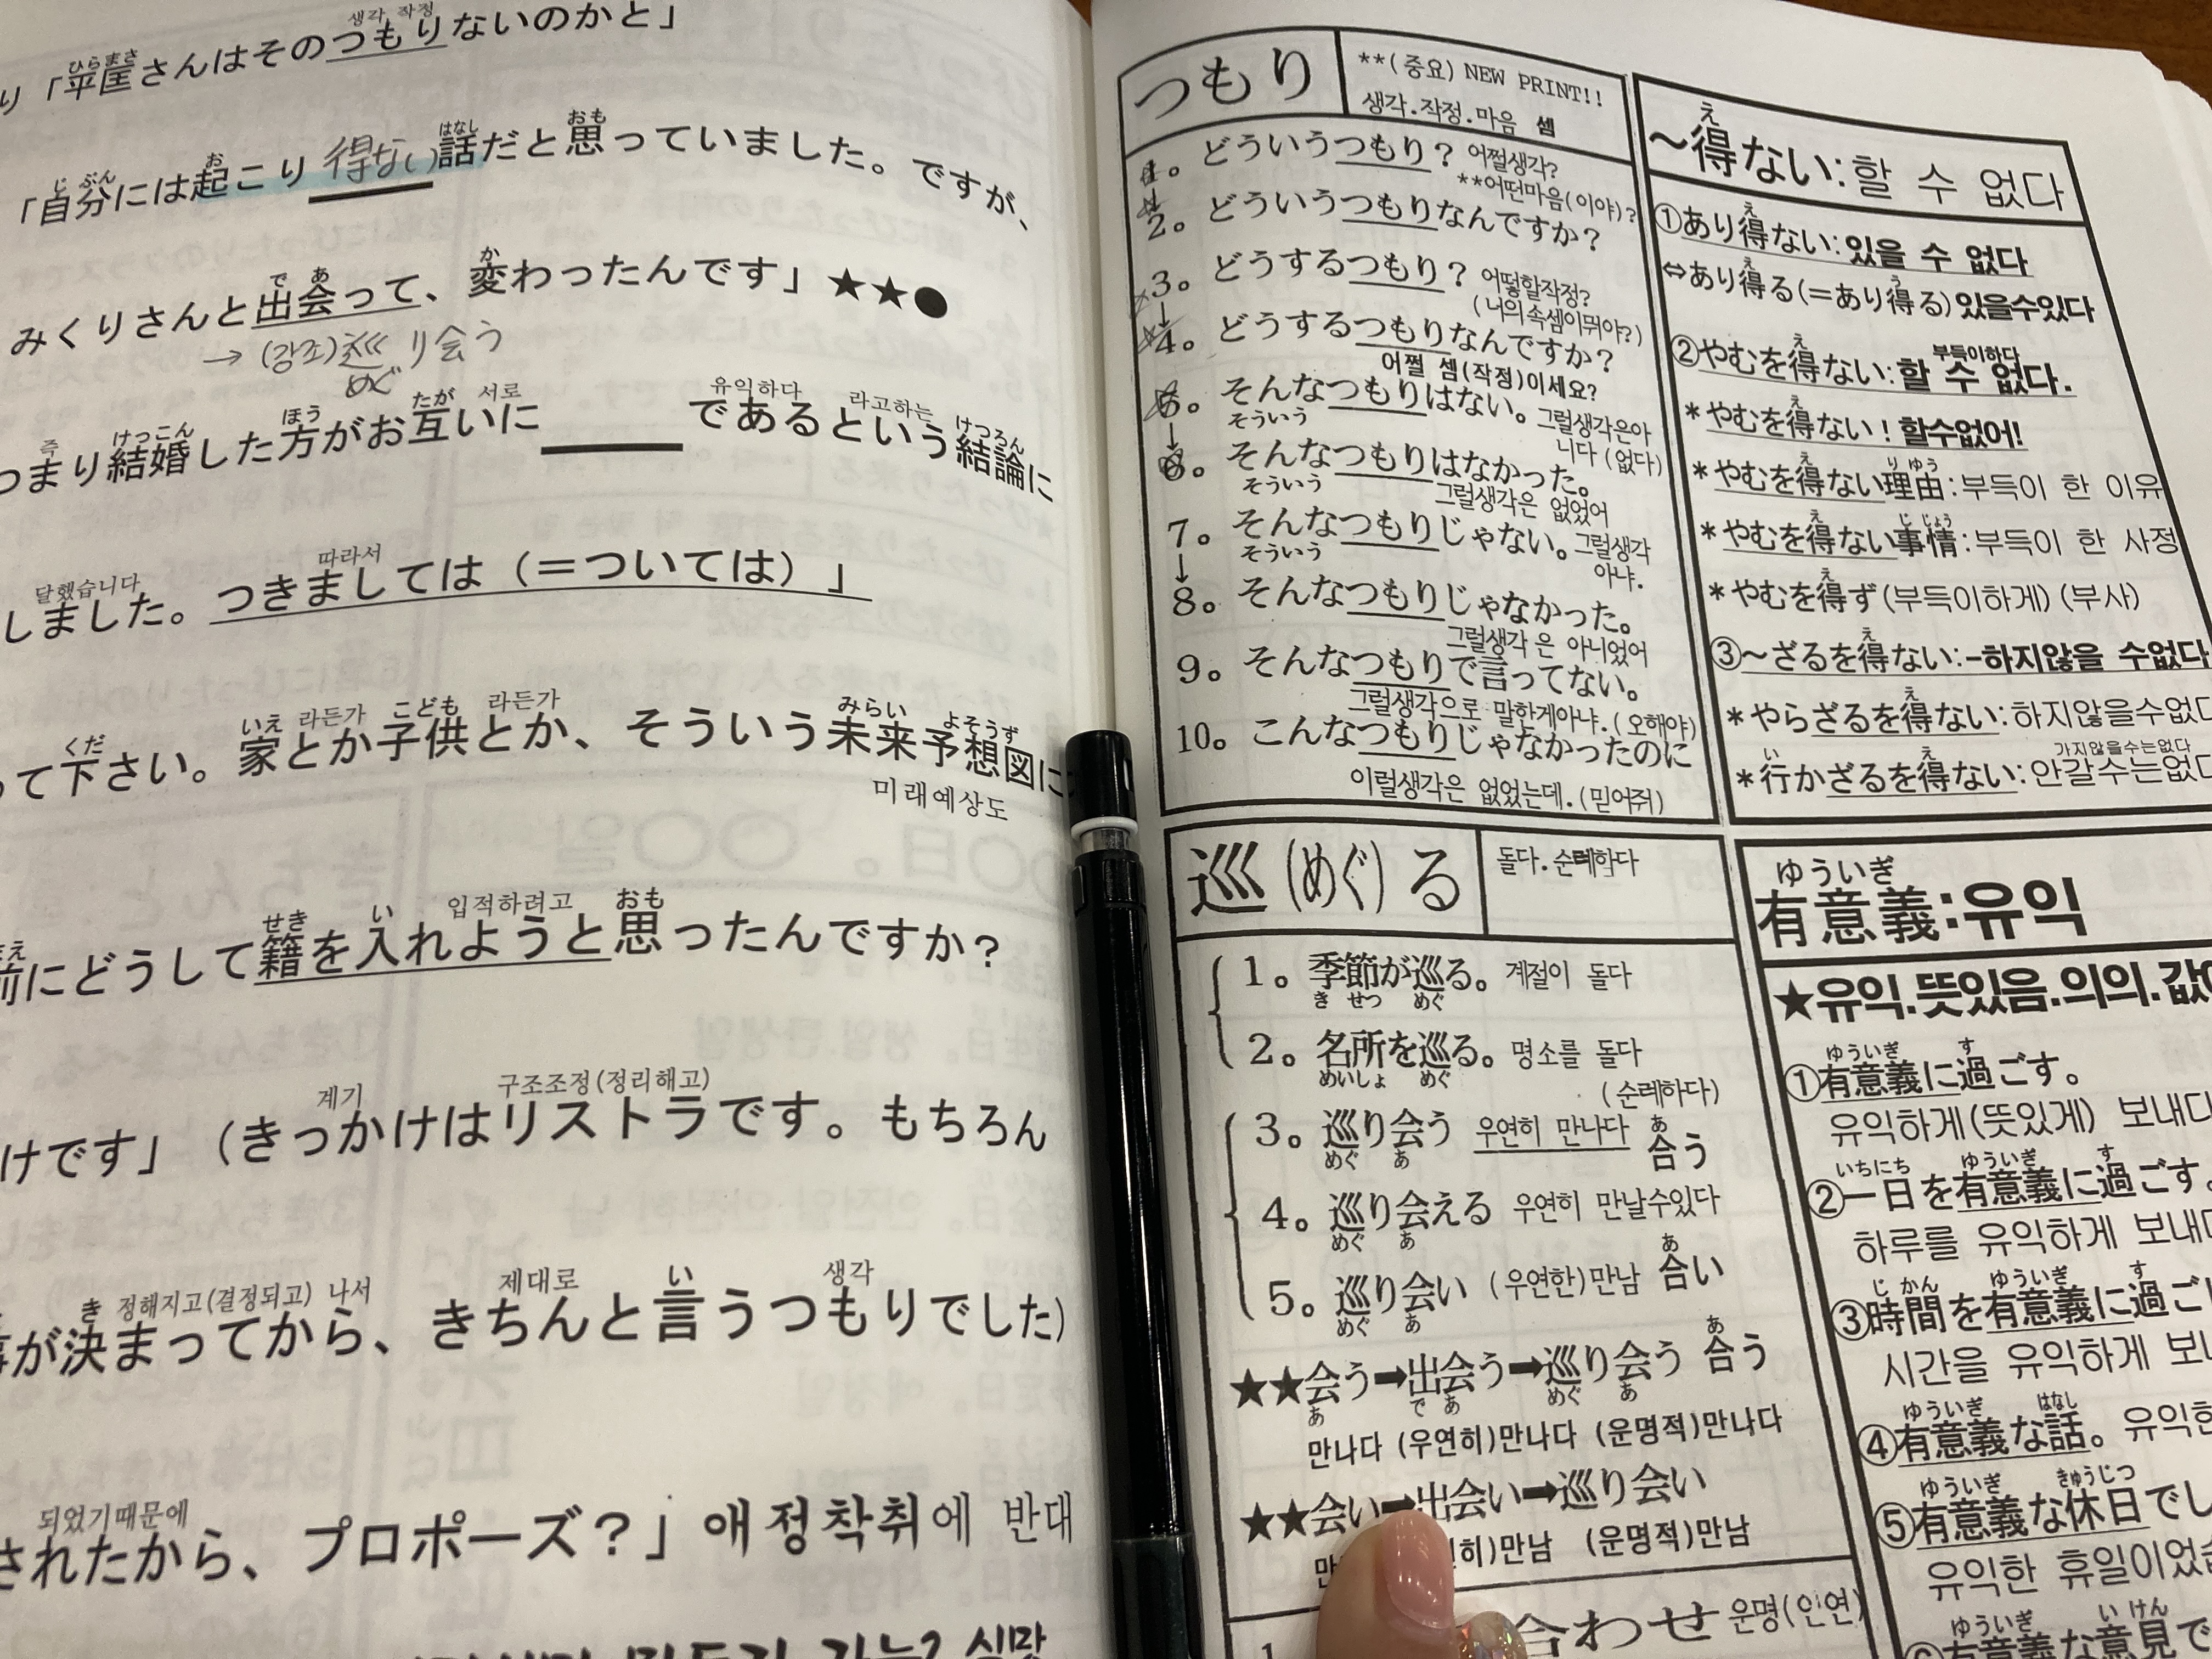 生각 작정
り「平匡さんはそのつもりないのかと」
ひらまさ
「自分には起こり得ない話だと思っていました。ですが、
じぶん お はなし おも
みくりさんと出会って、変わったんです」★★●
で あ か
→(강조)巡り会う
めぐ
つまり結婚した方がお互いに____であるという結論に
즉 けっこん ほう たが 서로 유익하다 라고하는 けつろん
しました。つきましては(=ついては)」
달했습니다 따라서
って下さい。家とか子供とか、そういう未来予想図に
くだ いえ 라든가 こども 라든가 みらい よそうず
미래예상도
前にどうして籍を入れようと思ったんですか?
まえ せき い 입적하려고 おも
けです」(きっかけはリストラです。もちろん
계기 구조조정(정리해고)
が決まってから、きちんと言うつもりでした)
き 정해지고(결정되고) 나서 제대로 い 생각
されたから、プロポーズ?」애정착취에 반대
되었기때문에
つもり
**(중요)NEW PRINT!!
생각.작정.마음 셈
1。どういうつもり? 어쩔생각?
**어떤마음(이야)?
2。どういうつもりなんですか?
3。どうするつもり? 어떻할작정?
(너의속셈이뭐야?)
4。どうするつもりなんですか?
어쩔 셈(작정)이세요?
5。そんなつもりはない。그럴생각은아니다(없다)
そういう
6。そんなつもりはなかった。
そういう 그럴생각은 없었어
7。そんなつもりじゃない。그럴생각아냐.
そういう
8。そんなつもりじゃなかった。
그럴생각은 아니었어
9。そんなつもりで言ってない。
그럴생각으로 말한게아냐.(오해야)
10。こんなつもりじゃなかったのに
이럴생각은 없었는데.(믿어줘)
巡(めぐ)る
돌다.순례하다
1。季節が巡る。계절이 돌다
き せつ めぐ
2。名所を巡る。명소를 돌다
めいしょ めぐ (순례하다)
3。巡り会う 우연히 만나다 合う
めぐ あ あ
4。巡り会える 우연히 만날수있다
めぐ あ
5。巡り会い (우연한)만남 合い
めぐ あ あ
★★会う➡出会う➡巡り会う 合う
あ で あ めぐ あ あ
만나다 (우연히)만나다 (운명적)만나다
★★会い➡出会い➡巡り会い
히)만남 (운명적)만남
合わせ 운명(인연)
1
~得ない:할 수 없다
え
①あり得ない:있을 수 없다
え
⇔あり得る(=あり得る)있을수있다
え う
②やむを得ない:할 수 없다.
え 부득이하다
*やむを得ない!할수없어!
え
*やむを得ない理由:부득이 한 이유
え りゆう
*やむを得ない事情:부득이 한 사정
え じじょう
*やむを得ず(부득이하게)(부사)
え
③~ざるを得ない:-하지않을 수없다
え
*やらざるを得ない:하지않을수없다
え
*行かざるを得ない:안갈수는없다
い え 가지않을수는없다
ゆういぎ
有意義:유익
★유익.뜻있음.의의.값
①有意義に過ごす。
ゆういぎ す
유익하게(뜻있게) 보내다
②一日を有意義に過ごす。
いちにち ゆういぎ す
하루를 유익하게 보내
③時間を有意義に過ご
じかん ゆういぎ す
시간을 유익하게 보
④有意義な話。유익한
ゆういぎ はなし
⑤有意義な休日でし
ゆういぎ きゅうじつ
유익한 휴일이었습
⑥有意義な意見で
ゆういぎ い けん